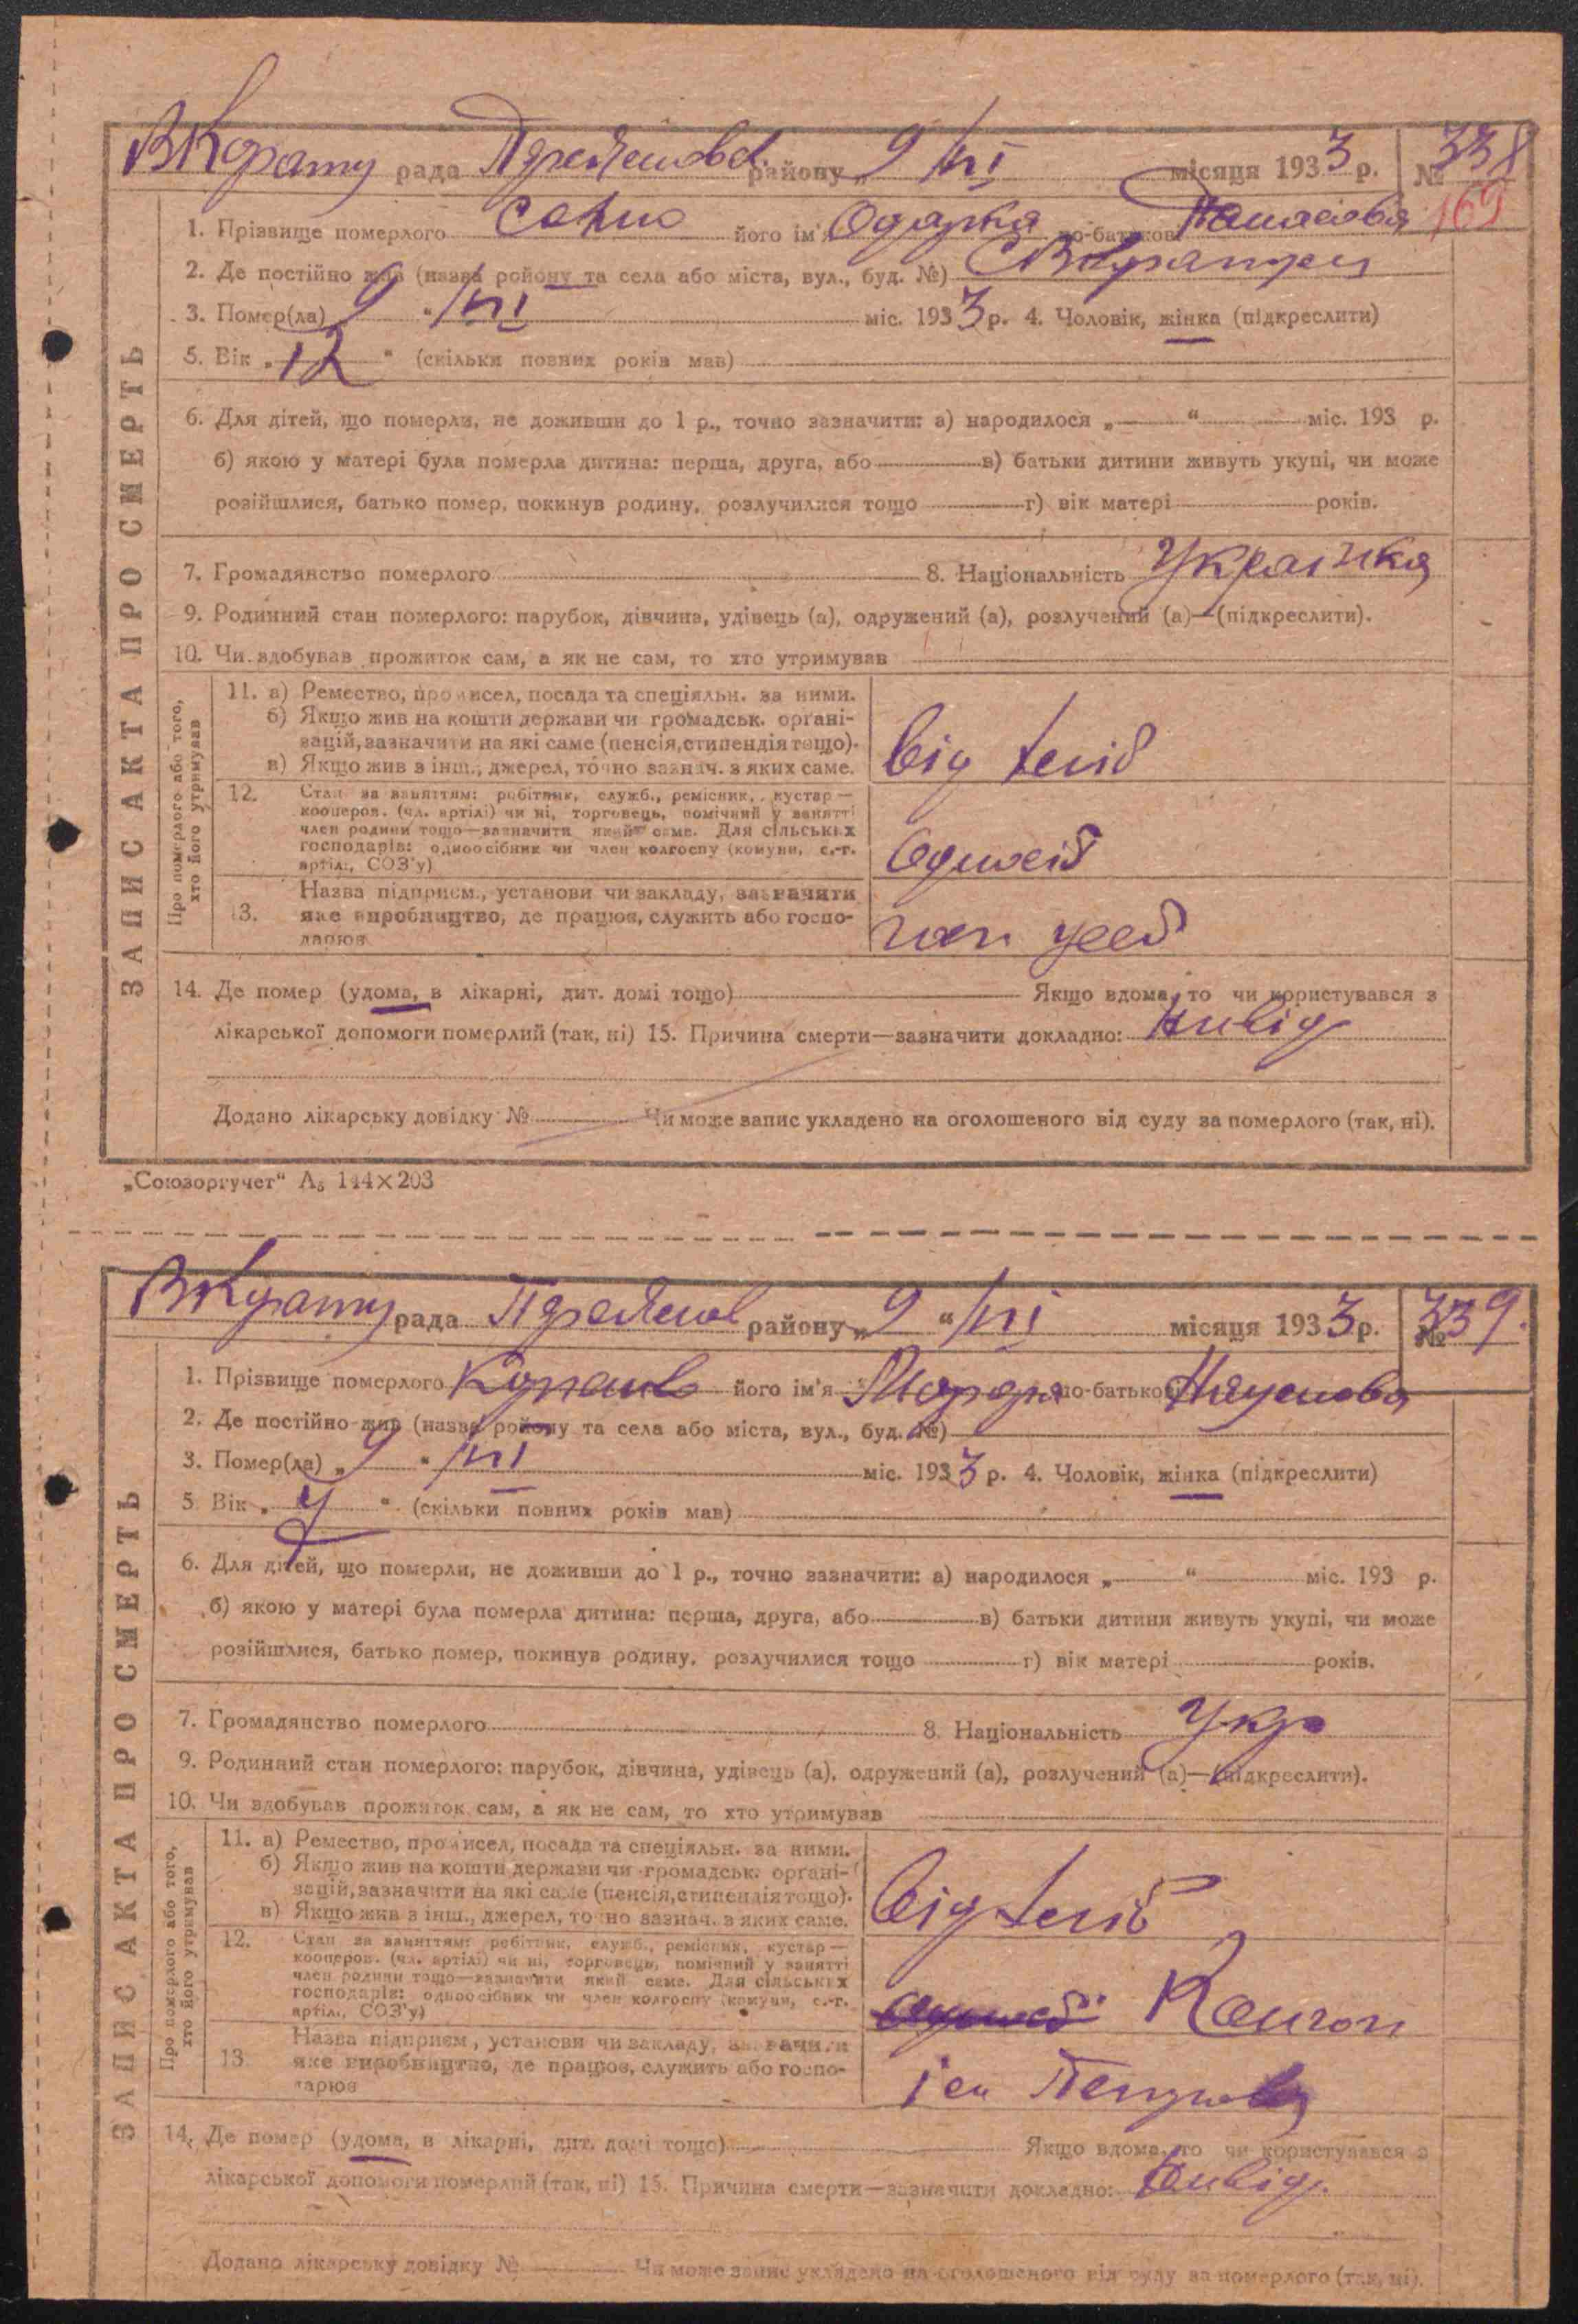 ВКрату рада района „ 9 /VI місяця 1933 р. № 338
169
1. Прізвище померлого його ім'я Одарка по-батькові Панасовя
2. Де постійно жив (назва ройону та села або міста, вул., буд. №)
3. Помер(ла) 9 " /VI міс. 1933 р. 4. Чоловік, жінка (підкреслити)
5. Вік „ 12 " (скільки повних років мав)
6. Для дітей, що померли, не доживши до 1 р., точно зазначити: а) народилося „ — " міс. 193 р.
б) якою у матері була померла дитина: перша, друга, або в) батьки дитини живуть укупі, чи може
розійшлися, батько помер, покинув родину, розлучилися тощо г) вік матері років.
7. Громадянство померлого 8. Національність Украінка
9. Родинний стан померлого: парубок, дівчина, удівець (а), одружений (а), розлучений (а)—(підкреслити).
10. Чи здобував прожиток сам, а як не сам, то хто утримував
ЗАПИС АКТА ПРО СМЕРТЬ
Про померлого або того, хто його утримував
11. а) Ремество, промисел, посада та спеціяльн. за ними.
б) Якщо жив на кошти держави чи громадськ. органі-
зацій, зазначити на які саме (пенсія, стипендія тощо).
в) Якщо жив з інш., джерел, точно зазнач. з яких саме.
12. Стан за заняттям: робітник, служб., ремісник, кустар —
кооперов. (чл. артілі) чи ні, торговець, помічний у занятті
член родини тощо—зазначити який саме. Для сільських
господарів: одноосібник чи член колгоспу (комуни, с.-г.
артілі, СОЗ'у)
13. Назва підприєм., установи чи закладу, зазначити
яке виробництво, де працює, служить або госпо-
дарює
14. Де помер (удома, в лікарні, дит. домі тощо) Якщо вдома, то чи користувався з
лікарської допомоги померлий (так, ні) 15. Причина смерти—зазначити докладно:
Додано лікарську довідку № Чи може запис укладено на оголошеного від суду за померлого (так, ні).
„Союзоргучет" А₅ 144×203
ВКрату рада району „ 9 " /VI місяця 1933 р. № 339.
1. Прізвище померлого його ім'я по-батькові Наумовя
2. Де постійно жив (назва ройону та села або міста, вул., буд. №)
3. Помер(ла) „ 9 " /VI міс. 1933 р. 4. Чоловік, жінка (підкреслити)
5. Вік „ " (скільки повних років мав)
6. Для дітей, що померли, не доживши до 1 р., точно зазначити: а) народилося „ — " міс. 193 р.
б) якою у матері була померла дитина: перша, друга, або в) батьки дитини живуть укупі, чи може
розійшлися, батько помер, покинув родину, розлучилися тощо г) вік матері років.
7. Громадянство померлого 8. Національність Укр
9. Родинний стан померлого: парубок, дівчина, удівець (а), одружений (а), розлучений (а)—(підкреслити).
10. Чи здобував прожиток сам, а як не сам, то хто утримував
ЗАПИС АКТА ПРО СМЕРТЬ
Про померлого або того, хто його утримував
11. а) Ремество, промисел, посада та спеціяльн. за ними.
б) Якщо жив на кошти держави чи громадськ. органі-
зацій, зазначити на які саме (пенсія, стипендія тощо).
в) Якщо жив з інш., джерел, точно зазнач. з яких саме.
12. Стан за заняттям: робітник, служб., ремісник, кустар —
кооперов. (чл. артілі) чи ні, торговець, помічний у занятті
член родини тощо—зазначити який саме. Для сільських
господарів: одноосібник чи член колгоспу (комуни, с.-г.
артілі, СОЗ'у)
13. Назва підприєм., установи чи закладу, зазначити
яке виробництво, де працює, служить або госпо-
дарює
ім Петровськ
14. Де помер (удома, в лікарні, дит. домі тощо) Якщо вдома, то чи користувався з
лікарської допомоги померлий (так, ні) 15. Причина смерти—зазначити докладно:
Додано лікарську довідку № Чи може запис укладено на оголошеного від суду за померлого (так, ні).